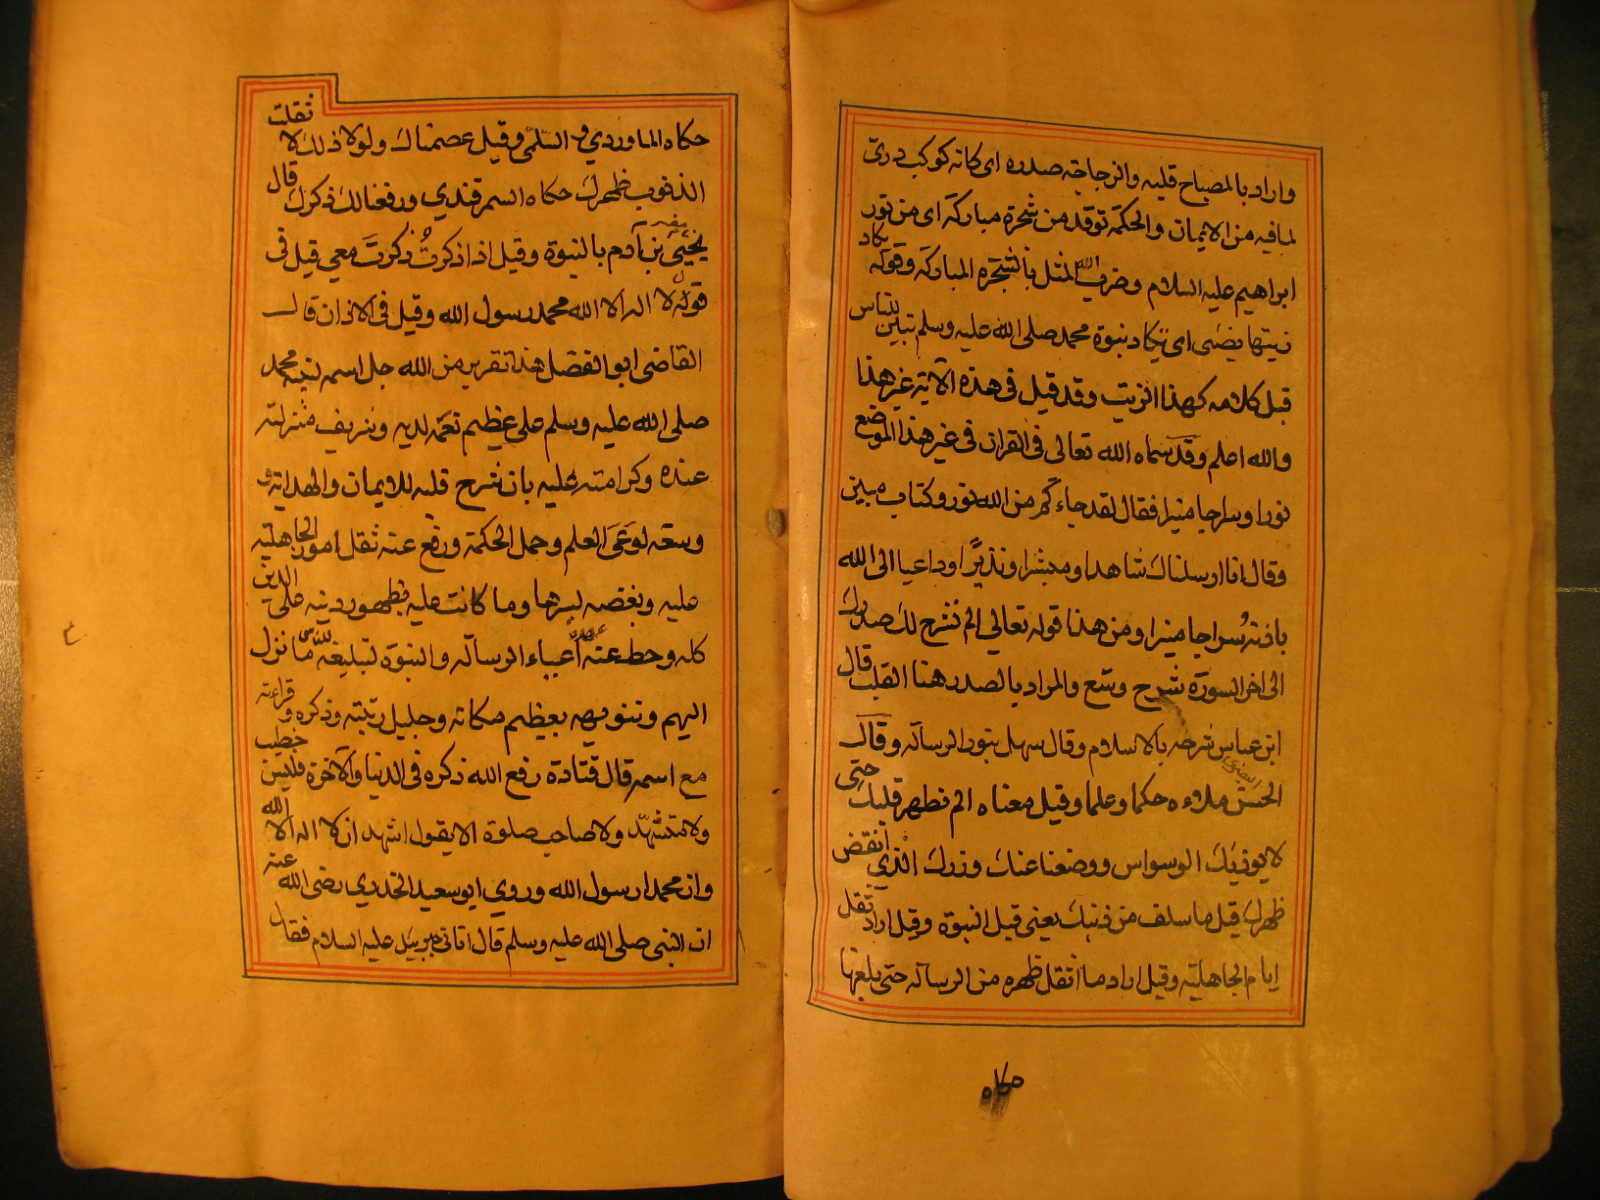 واراد بالمصباح قلبه والزجاجة صدره اى كانه كوكب درى
لمافيه من الايمان والحكمة توقد من شجرة مباركة اى من نور
ابراهيم عليه السلام وضرب الله المثل بالشجرة المباركة وقوله يكاد
زيتها يضئى اى تكاد نبوة محمد صلى الله عليه وسلم تبين للناس
قبل كلامه كهذا الزيت وقد قيل فى هذه الآية غير هذا
والله اعلم وقد سماه الله تعالى فى القران فى غير هذا الموضع
نورا وسراجا منيرا فقال لقد جاءكم من الله نور وكتاب مبين
وقال انا ارسلناك شاهدا ومبشرا ونذيرًا وداعيا الى الله
باذنه سُراجا منيرا ومن هذا قوله تعالي الم نشرح لك صدرك
الى اخر السورة شرح وسّع والمراد بالصدر هنا القلب قال
ابن عباس شرحه بالاسلام وقال سهل بنور الرسالة وقال
الحسن البصرى ملاءه حكما وعلما وقيل معناه الم نطهر قلبك حتى
لا يوذيك الوسواس ووضعنا عنك وزرك الذي انقض
ظهرك قيل ما سلف من ذنبك يعنى قبل النبوة وقيل اراد ثقل
ايام الجاهلية وقيل اراد ما اثقل ظهره من الرسالة حتى بلغها
حكاه
حكاه الماوردي و السّلمى وقيل عصمناك ولولا ذلك لا ثقلت
الذنوب ظهرك حكاه السمرقندي ورفعنا لك ذكرك قال
يحيى بن آدم بالنبوة وقيل اذا ذكرتُ ذكرتَ معي قيل فى
قوله لا اله الا الله محمد رسول الله وقيل فى الاذان قال
القاضى ابو الفضل هذا تقرير من الله جل اسمه لنبيه محمد
صلى الله عليه وسلم على عظيم نعمه لديه وشريف منزلته
عنده وكرامته عليه بان شرح قلبه للايمان والهداية و
وسعه لوعى العلم وحمل الحكمة ورفع عنه ثقل امور الجاهلية
عليه وبغضه لسيرها وما كانت عليه بظهور دينه على الدين
كله وحط عنه اعباء الرسالة والنبوة لتبليغه للناس ما نزل
اليهم وتنويهه بعظيم مكانه وجليل رتبته وذكره و قراءته
مع اسمه قال قتادة رفع الله ذكره فى الدنيا والآخرة فليس خطيب
ولا متشهّد ولا صاحب صلوة الا يقول اشهد ان لا اله الا الله
وان محمدا رسول الله وروي ابو سعيد الخدري رضى الله عنه
ان النبى صلى الله عليه وسلم قال اتانى جبرييل عليه السلام فقال